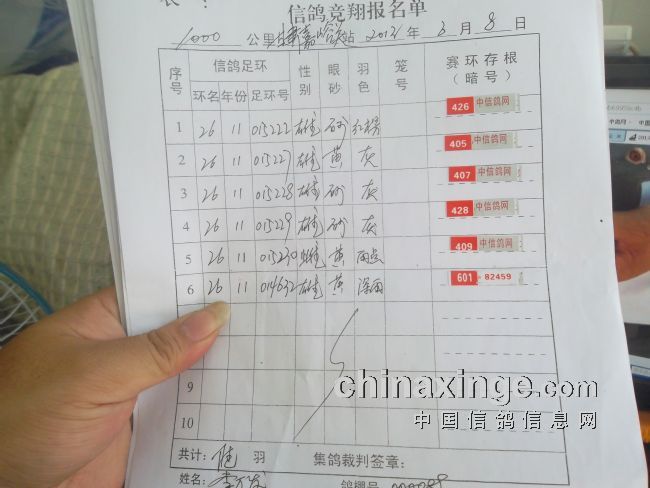 信鸽竞翔报名单
1000 公里 嘉峪关站 2012 年 3 月 8 日
序号 信鸽足环 性别 眼砂 羽色 笼号 赛环存根（暗号）
环名 年份 足环号
1 26 11 015222 雄 砂 红楞 426 中信鸽网
2 26 11 015227 雄 黄 灰 405 中信鸽网
3 26 11 015228 雄 砂 灰 407 中信鸽网
4 26 11 015229 雄 砂 灰 428 中信鸽网
5 26 11 015230 雌 黄 雨点 409 中信鸽网
6 26 11 014632 雄 黄 深雨 601 82459
9
10
chinaxinge.com
中国信鸽信息网
共计： 陆 羽 集鸽裁判签章：
姓名： 鸽棚号